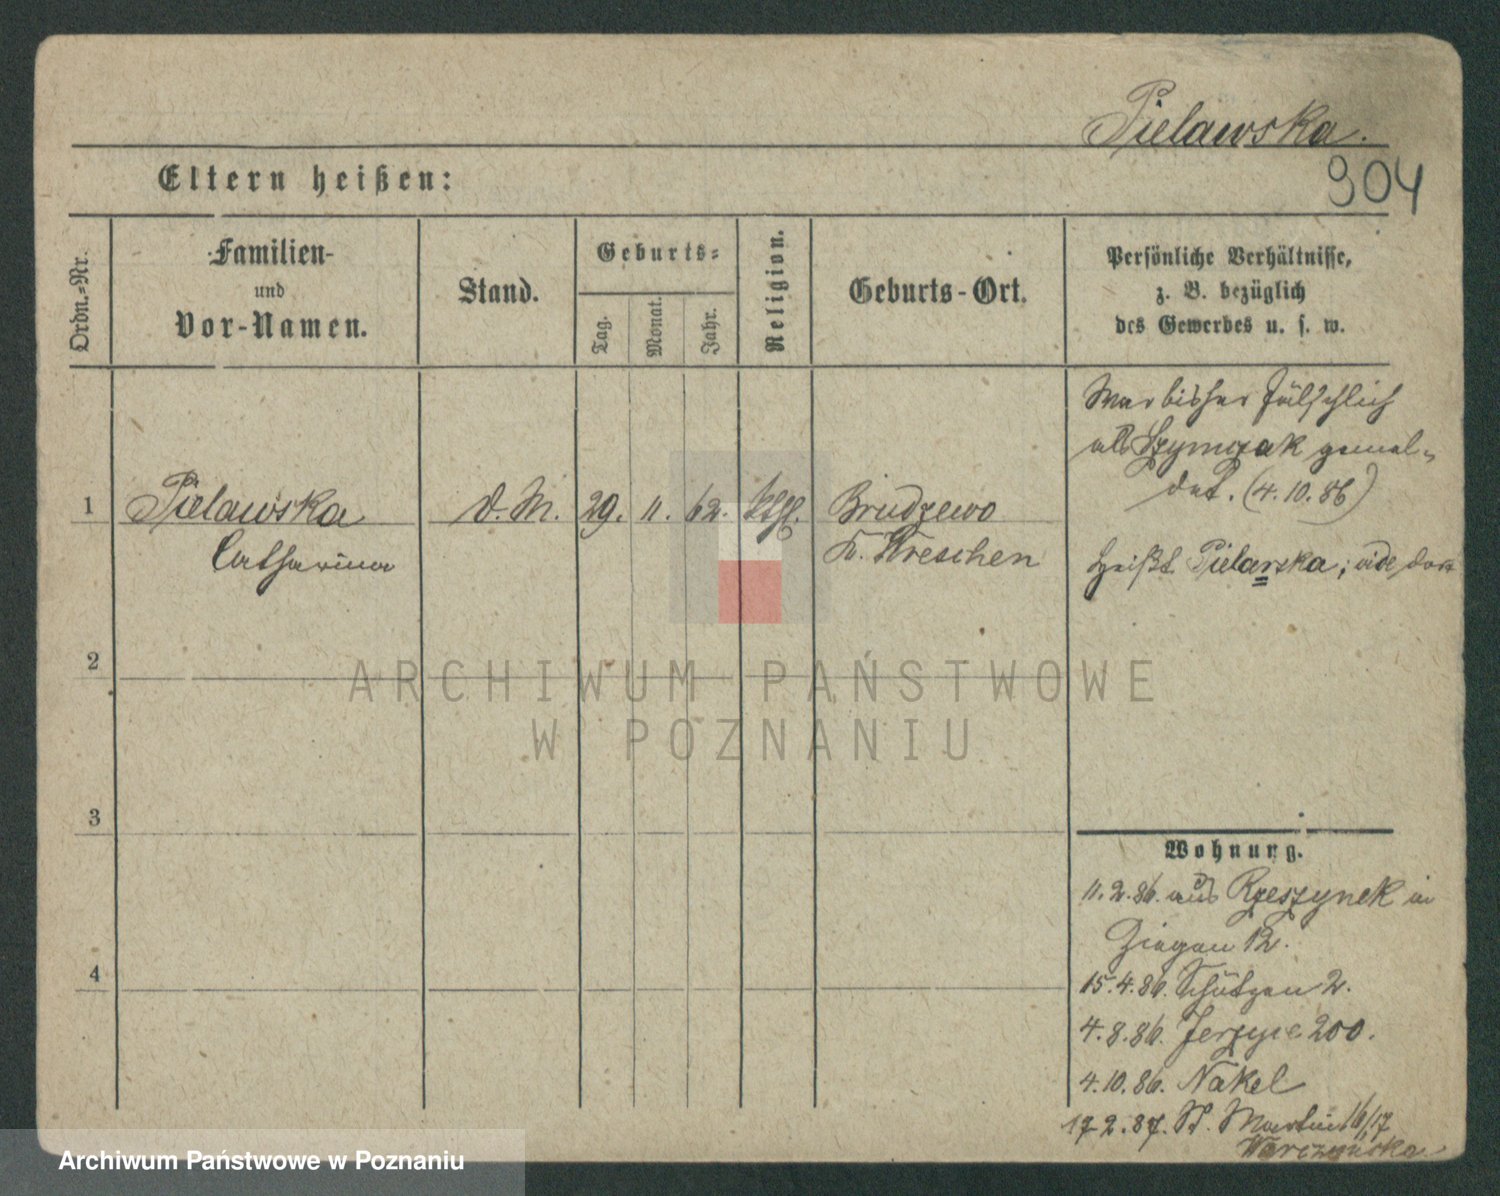 Pielawska.
904
Eltern heißen:
Ordn.-Nr.
Familien-
und
Vor-Namen.
Stand.
Geburts-
Tag.
Monat.
Jahr.
Religion.
Geburts-Ort.
Persönliche Verhältnisse,
z. B. bezüglich
des Gewerbes u. s. w.
War bisher fälschlich
als Szymczak gemel-
det. (4.10.86)
1 Pielawska d. M. 29. 11. 62. kth. Brudzewo
Catharina Kr. Wreschen
heißt Pielarska; vide dort
2
ARCHIWUM PAŃSTWOWE
W POZNANIU
3
Wohnung.
11.2.86. aus Rzeszynek in
Ziegen 12.
4
15.4.86. Schützen 2.
4.8.86. Jerzyce 200.
4.10.86. Nakel
17 2.87. St. Martin 16/17
Warczynska
Archiwum Państwowe w Poznaniu